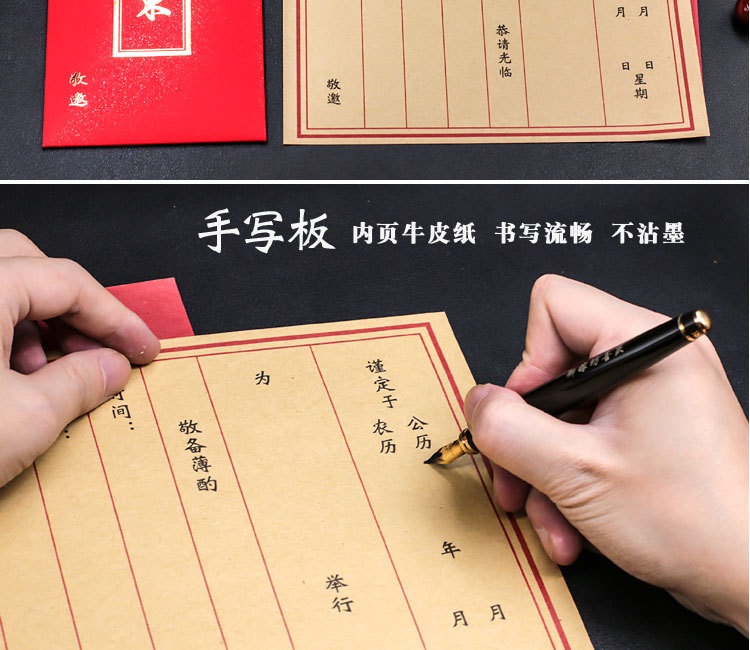 敬邀
月 月
日 日
星期
恭请光临
敬邀
手写板 内页牛皮纸 书写流畅 不沾墨
谨定于
公历
农历
年
月 月
为
举行
敬备薄酌
间：